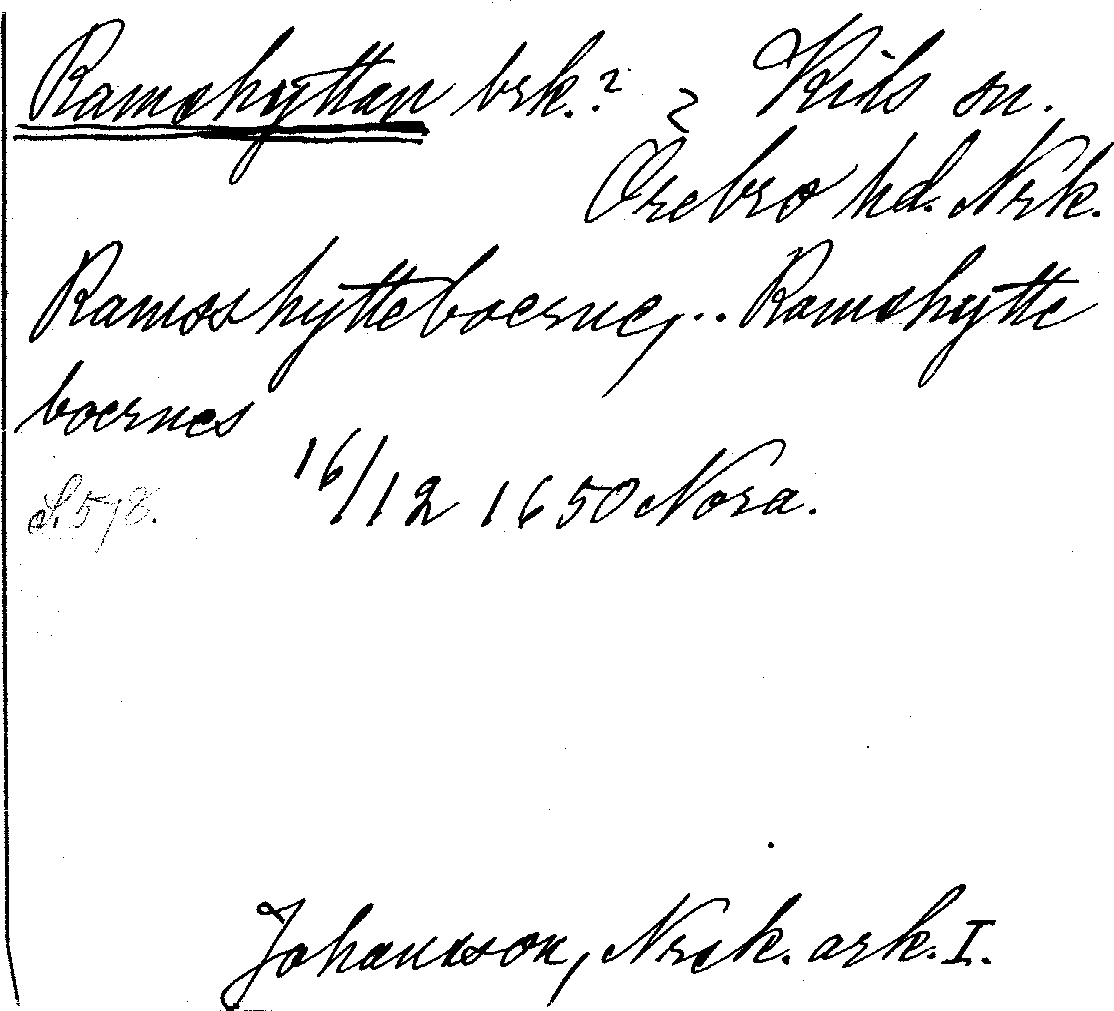 Ramshyttan brk.? ? Kils sn.
Örebro hd. Nrk.
Ramsshytteboerne, .. Ramshytte
boernes
S. 578. 16/12 1650 Nora.
Johansson, Nrck. ark. I.